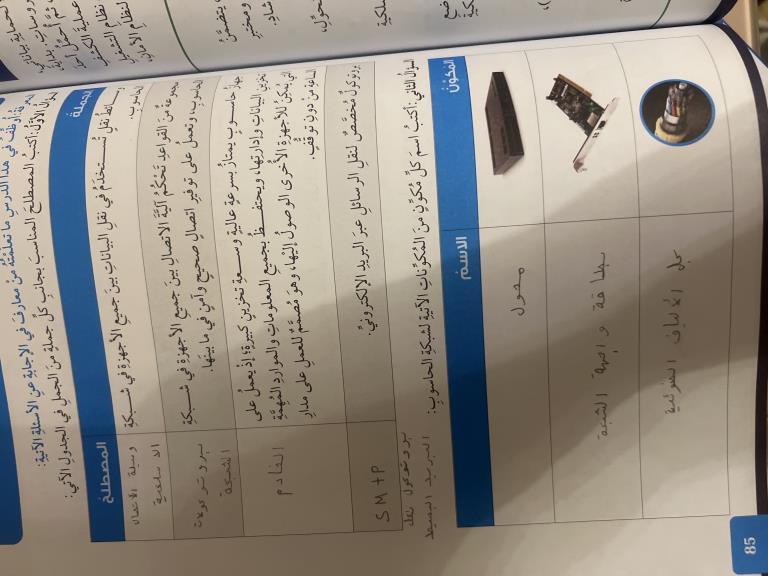 أُوظِّفُ في هذا الدرسِ ما تعلَّمْتُهُ منْ معارفَ في الإجابةِ عنِ الأسئلةِ الآتيةِ:
السؤالُ الأوَّلُ: أكتبُ المصطلحَ المناسبَ بجانبِ كلِّ جملةٍ منَ الجملِ في الجدولِ الآتي:
الجملة
المصطلح
وسائطُ نقلٍ تُستخدَمُ في نقلِ البياناتِ بينَ جميعِ الأجهزةِ في شبكةِ
الحاسوبِ.
وسيلة الاتصال
مجموعةٌ منَ القواعدِ تَحْكُمُ آليَّةَ الاتصالِ بينَ جميعِ الأجهزةِ في شبكةِ
الحاسوبِ، وتعملُ على توفيرِ اتصالٍ صحيحٍ وآمنٍ في ما بينَها.
بروتوكولات
الشبكة
جهازُ حاسوبٍ يمتازُ بسرعةٍ عاليةٍ وسعةِ تخزينٍ كبيرةٍ؛ إذْ يعملُ على
تخزينِ البياناتِ وإدارتِها، ويحتفظُ بجميعِ المعلوماتِ والمواردِ المُهِمَّةِ
التي يُمكِنُ للأجهزةِ الأُخرى الوصولُ إليْها، وهوَ مُصمَّمٌ للعملِ على مدارِ
الساعةِ منْ دونِ توقُّفٍ.
الخادم
بروتوكولٌ مُخصَّصٌ لنقلِ الرسائلِ عبرَ البريدِ الإلكترونيِّ.
SMtP
بروتوكول نقل
البريد البسيط
السؤالُ الثاني: أكتبُ اسمَ كلِّ مُكوِّنٍ منَ المُكوِّناتِ الآتيةِ لشبكةِ الحاسوبِ:
المُكوِّنُ
الاسمُ
محول
بطاقة واجهة الشبكة
الألياف الضوئية
85